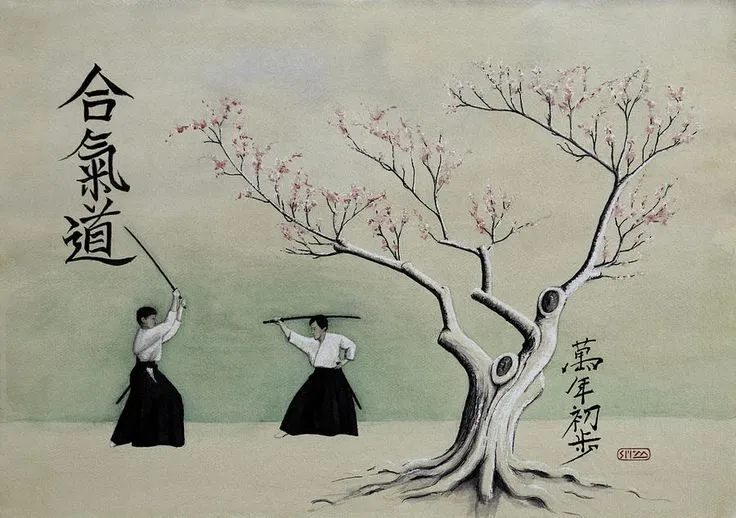 合氣道
萬年初歩